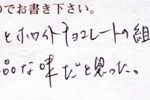 のでお書き下さい。
とホワイトチョコレートの組
品な味だと思った。